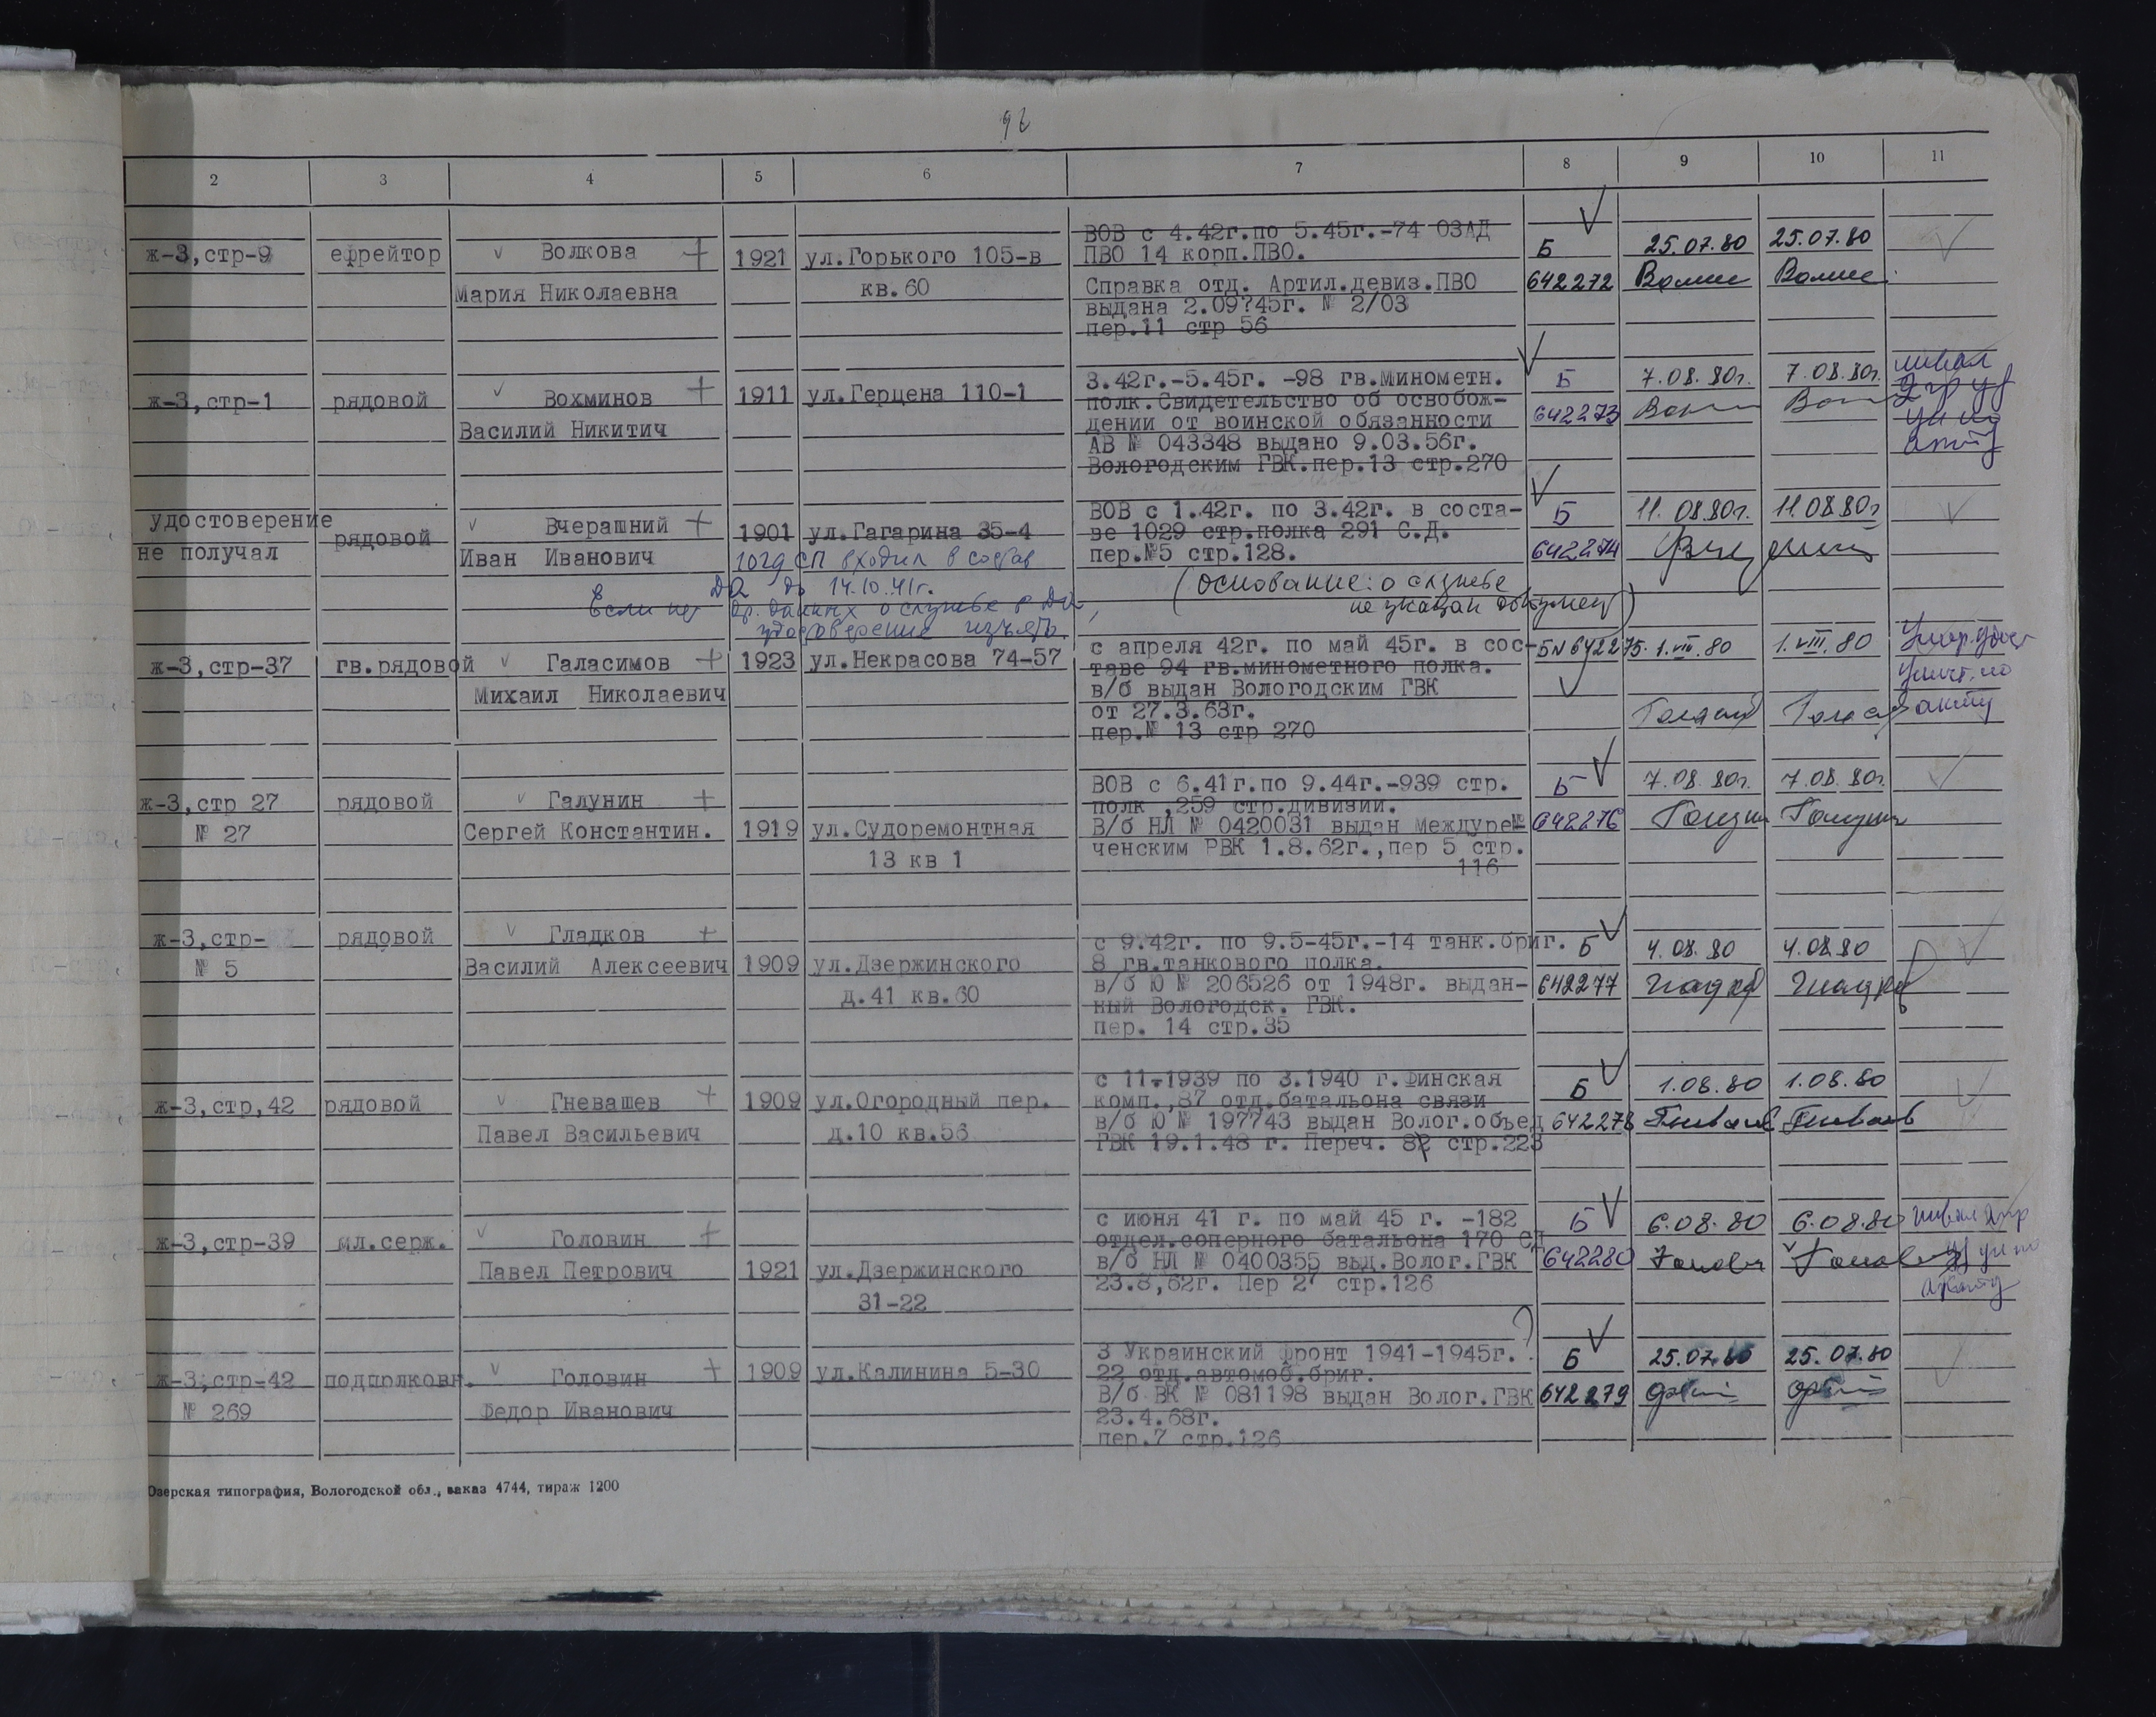 2 3 4 5 6 7 8 9 10 11
ж-3,стр-9 ефрейтор Волкова 1921 ул.Горького 105-в
Мария Николаевна кв.60
ВОВ с 4.42г.по 5.45г.-74 ОЗАД
ПВО 14 корп.ПВО.
Справка отд. Артил.девиз.ПВО
выдана 2.09?45г. № 2/03
пер.11 стр 56
Б 25.07.80 25.07.80
642272
ж-3,стр-1 рядовой Вохминов 1911 ул.Герцена 110-1
Василий Никитич
3.42г.-5.45г. -98 гв.минометн.
полк.Свидетельство об освобож-
дении от воинской обязанности
АВ № 043348 выдано 9.03.56г.
Вологодским ГВК.пер.13 стр.270
Б 7.08.80г. 7.08.80г.
642273
удостоверение рядовой Вчерашний 1901 ул.Гагарина 35-4
не получал Иван Иванович
ВОВ с 1.42г. по 3.42г. в соста-
ве 1029 стр.полка 291 С.Д.
пер.№5 стр.128.
(основание: о службе
не указан документ)
Б 11.08.80г. 11.08.80г
642274
1029 СП входил в состав
ДА до 14.10.41г.
Если нет др. данных о службе в ДА,
удостоверение изъять.
ж-3,стр-37 гв.рядовой Галасимов 1923 ул.Некрасова 74-57
Михаил Николаевич
с апреля 42г. по май 45г. в сос-
таве 94 гв.минометного полка.
в/б выдан Вологодским ГВК
от 27.3.63г.
пер.№ 13 стр 270
Б№642275. 1.VIII.80 1.VIII.80
акту
ж-3,стр 27 рядовой Галунин
№ 27 Сергей Константин. 1919 ул.Судоремонтная
13 кв 1
ВОВ с 6.41г.по 9.44г.-939 стр.
полк ,259 стр.дивизии.
В/б НЛ № 0420031 выдан Междуре№
ченским РВК 1.8.62г.,пер 5 стр.
116
Б 7.08.80г. 7.08.80г.
642276
ж-3,стр- рядовой Гладков
№ 5 Василий Алексеевич 1909 ул.Дзержинского
д.41 кв.60
с 9.42г. по 9.5-45г.-14 танк.бриг.
8 гв.танкового полка.
в/б Ю № 206526 от 1948г. выдан-
ный Вологодск. ГВК.
пер. 14 стр.35
Б 4.08.80 4.08.80
642277 Гладков Гладков
ж-3,стр,42 рядовой Гневашев 1909 ул.Огородный пер.
Павел Васильевич д.10 кв.56
с 11.1939 по 3.1940 г.Финская
комп.,87 отд.батальона связи
в/б Ю № 197743 выдан Волог.объед
ГВК 19.1.48 г. Переч. 82 стр.223
Б 1.08.80 1.08.80
642278
ж-3,стр-39 мл.серж. Головин
Павел Петрович 1921 ул.Дзержинского
31-22
с июня 41 г. по май 45 г. -182
отдел.соперного батальона 170 СД
в/б НЛ № 0400355 выд.Волог.ГВК
23.8,62г. Пер 27 стр.126
Б 6.08.80 6.08.80
642280
акту
ж-3,стр-42 подполковн. Головин 1909 ул.Калинина 5-30
№ 269 Федор Иванович
3 Украинский фронт 1941-1945г.
22 отд.автомоб.бриг.
В/б ВК № 081198 выдан Волог.ГВК
23.4.68г.
пер.7 стр.126
Б 25.07.80 25.07.80
642279
Озерская типография, Вологодской обл., заказ 4744, тираж 1200